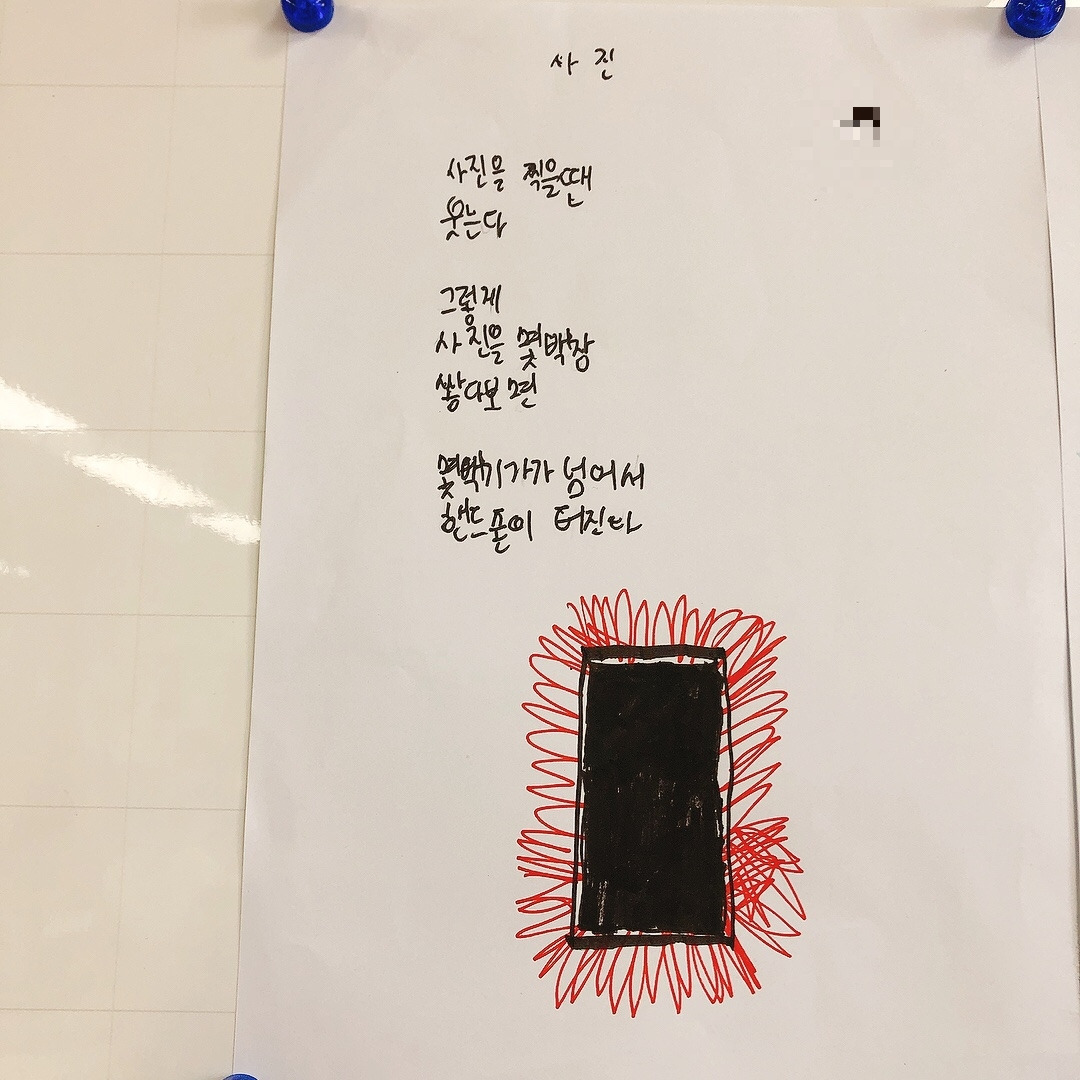 사진
사진을 찍을땐
웃는다
그렇게
사진을 몇백장
쌓다보면
몇백기가가 넘어서
핸드폰이 터진다